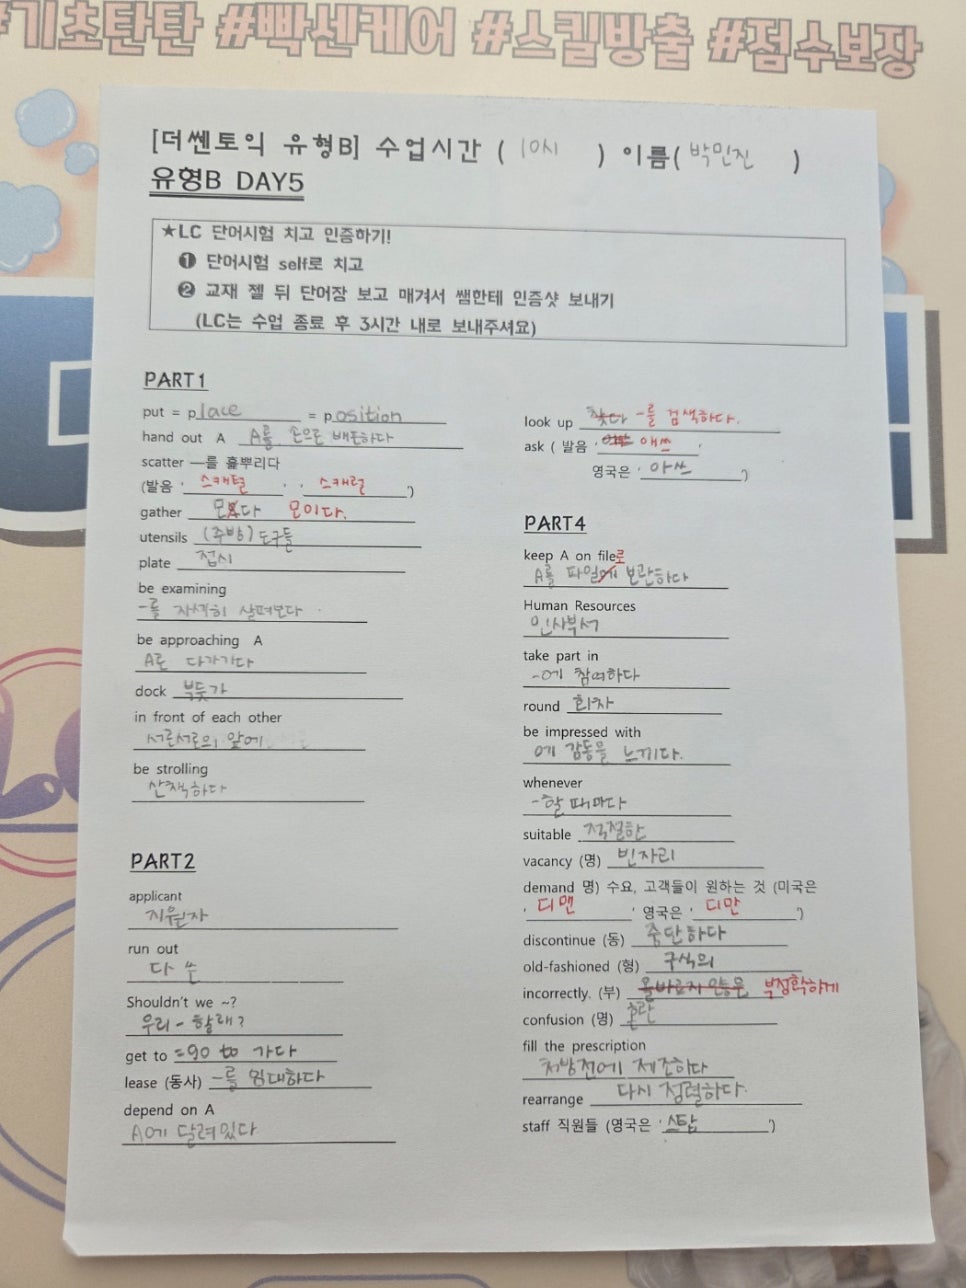 #기초탄탄 #빡센케어 #스킬방출 #점수보장
[더쎈토익 유형B] 수업시간 ( 10시 ) 이름( 박민진 )
유형B DAY5
★LC 단어시험 치고 인증하기!
❶ 단어시험 self로 치고
❷ 교재 젤 뒤 단어장 보고 매겨서 쌤한테 인증샷 보내기
(LC는 수업 종료 후 3시간 내로 보내주셔요)
PART1
put = place = position
hand out A A를 손으로 배포하다
scatter —를 흩뿌리다
(발음 ' 스캐털 ' ' 스캐럴 ')
gather 모으다 모이다.
utensils (주방)도구들
plate 접시
be examining
-를 자세히 살펴보다
be approaching A
A로 다가가다
dock 부둣가
in front of each other
서로서로의 앞에
be strolling
산책하다
PART2
applicant
지원자
run out
다 쓴
Shouldn't we ~?
우리 - 할래?
get to =go to 가다
lease (동사) -를 임대하다
depend on A
A에 달려있다
look up 찾다 -를 검색하다.
ask ( 발음 ' 애쓰 '
영국은 ' 아쓰 ')
PART4
keep A on file로
A를 파일에 보관하다
Human Resources
인사부서
take part in
-에 참여하다
round 회차
be impressed with
에 감동을 느끼다.
whenever
-할 때마다
suitable 적절한
vacancy (명) 빈자리
demand 명) 수요, 고객들이 원하는 것 (미국은
' 디맨 ' 영국은 ' 디만 ')
discontinue (동) 중단하다
old-fashioned (형) 구식의
incorrectly. (부) 올바르지 않은 부정확하게
confusion (명) 혼란
fill the prescription
처방전에 제조하다
rearrange 다시 정렬하다.
staff 직원들 (영국은 '스탑 ')